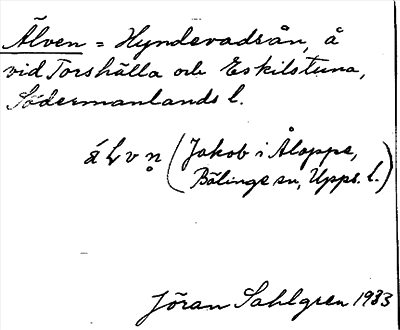 Älven = Hyndevadsån, å
vid Torshälla och Eskilstuna,
Södermanlands l.
álvn̥ (Jakob i Åloppe,
Bälinge sn, Upps. l.)
Jöran Sahlgren 1933